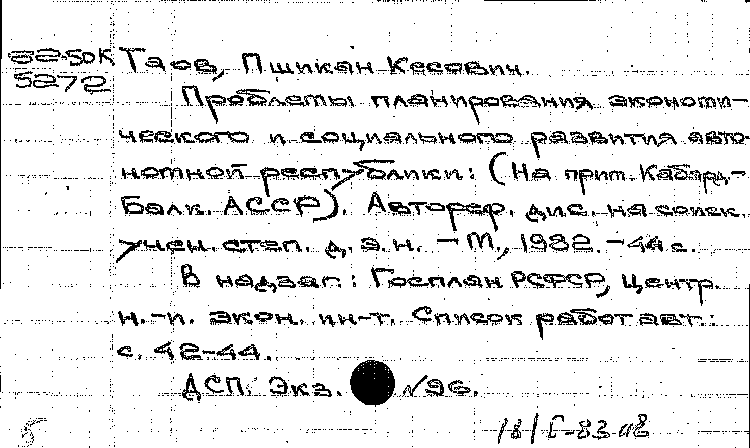 82-50К Таов, Пшикан Кесович.
5272
Проблемы планирования экономи-
ческого и социального развития авто-
номной республики: (На прим. Кабард.-
Балк. АССР). Автореф. дис. на соиск.
учен. степ. д. э. н. - М., 1982. - 44 с.
В надзаг.: Госплан РСФСР, Центр.
н.-и. экон. ин-т. Список работ авт.:
с. 42-44.
ДСП. Экз. №96.